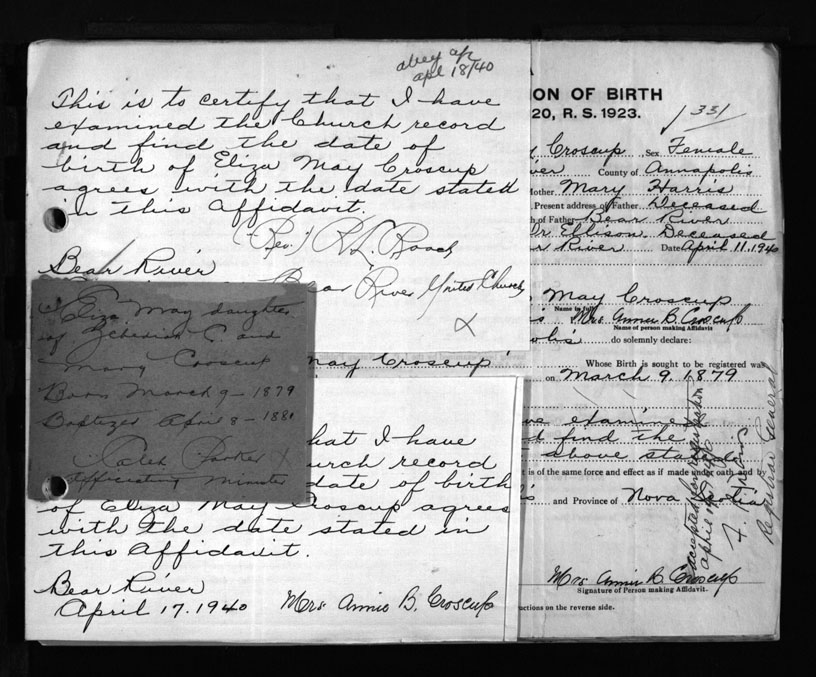 apl 18/40
This is to certify that I have
examined the Church record
and find the date of
birth of Eliza May Croscup
agrees with the date stated
in this Affidavit.
(Rev.) R.L. Roach
Bear River
Bear River United Church
X
Eliza May daughter
of Zebediah C. and
Mary Croscup
Born March 9 - 1879
Baptized April 8 - 1880
Caleb Parker
officiating Minister
May Croscup
hat I have
urch record
date of birth
of Eliza May Croscup agrees
with the date stated in
this Affidavit.
Bear River
April 17. 1940 Mrs Annie B. Croscup
ON OF BIRTH
20, R. S. 1923.
331
Croscup Sex Female
iver County of Annapolis
Mother Mary Harris
Present address of Father Deceased
h of Father Bear River
Dr Ellison. Deceased
River Date April 11.1940
May Croscup
Name in full
Mrs Annie B. Croscup
Name of person making Affidavit
do solemnly declare:
Whose Birth is sought to be registered was
on March 9. 1879
ve examined
d find the
above stated
t is of the same force and effect as if made under oath and by
and Province of Nova Scotia
accepted for registration
Registrar General
Mrs Annie B. Croscup
Signature of Person making Affidavit.
uctions on the reverse side.